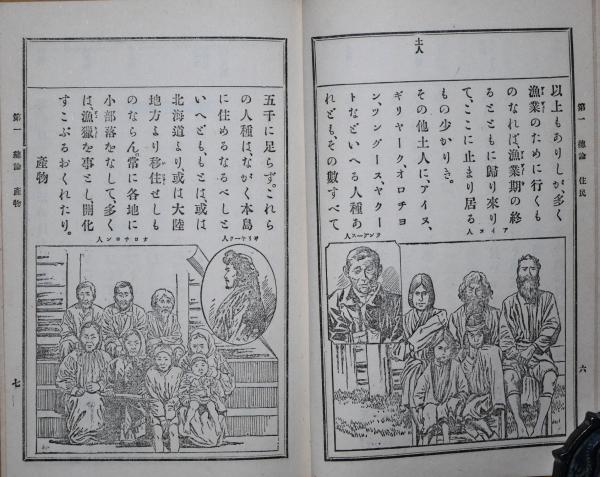 第一　總論　住民
六
土人
以上もありしが、多く
漁業のために行くも
のなれば、漁業期の終
るとともに歸り來り
て、ここに止まり居る
もの少かりき。
その他土人に、アイヌ、
ギリヤーク、オロチョ
ン、ツングース、ヤクー
トなどいへる人種あ
れども、その數すべて
アイヌ人
ツングース人
五千に足らず。これら
の人種は、ながく本島
に住めるなるべしと
いへども、もとは、或は
北海道より、或は大陸
地方より移住せしも
のならん。常に各地に
小部落をなして、多く
は、漁獵を事とし、開化
すこぶるおくれたり。
産物
ギリヤーク人
オロチョン人
第一　總論　産物
七